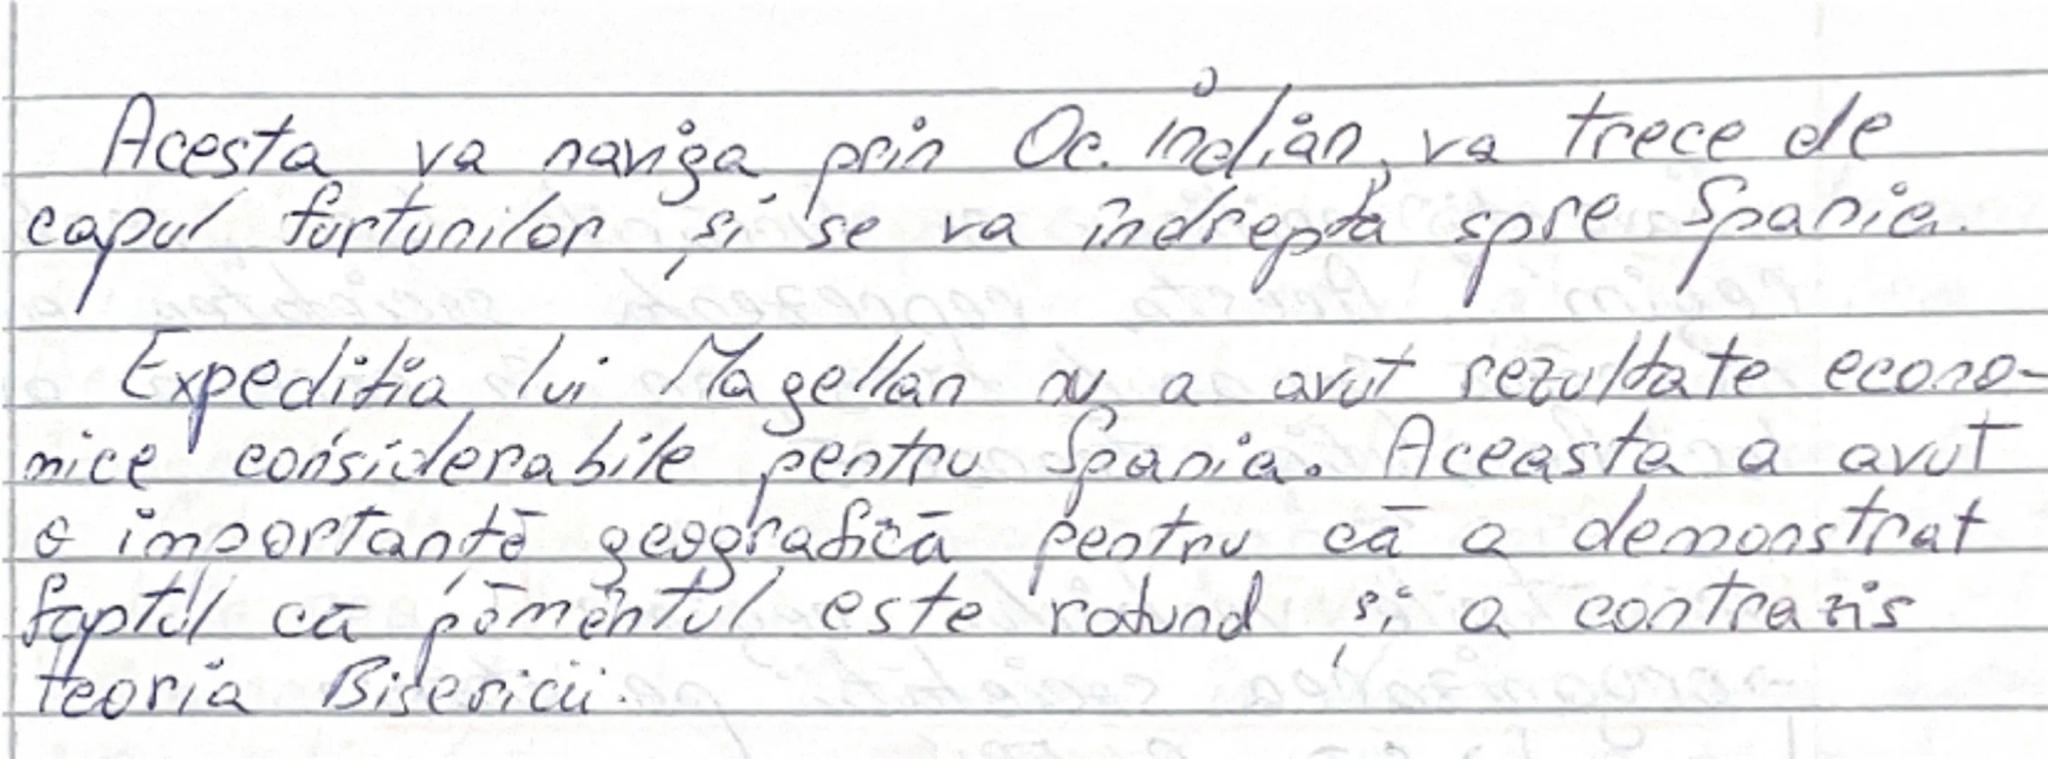 Acesta va naviga prin Oc. Indian, va trece de
capul furtunilor și se va îndrepta spre Spania.
Expeditia lui Magellan nu a avut rezultate econo-
mice considerabile pentru Spania. Aceasta a avut
o importanță geografică pentru că a demonstrat
faptul că pământul este rotund și a contrazis
teoria Bisericii.